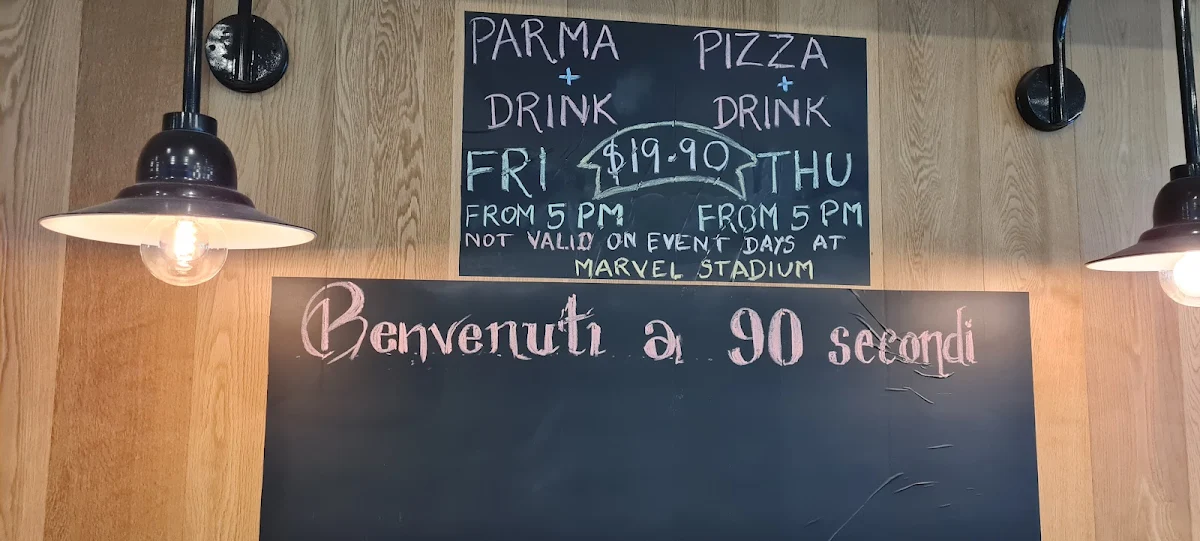 PARMA PIZZA
+ +
DRINK DRINK
FRI $19.90 THU
FROM 5 PM FROM 5 PM
NOT VALID ON EVENT DAYS AT
MARVEL STADIUM
Benvenuti a 90 secondi